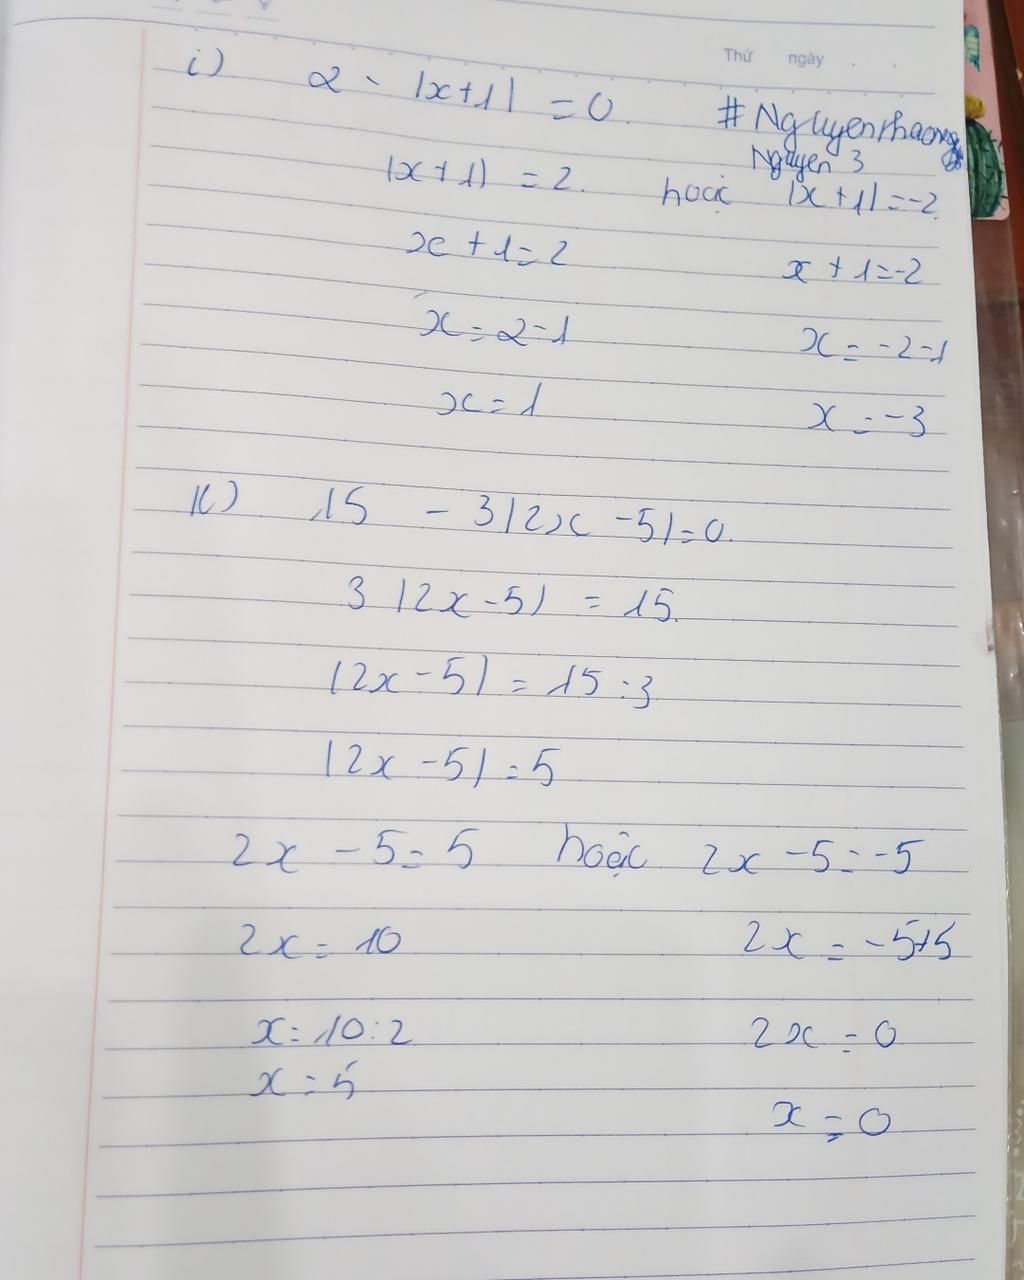 Thứ ngày
i) 2 - |x+1| = 0 #Nguyenphuong
Nguyen 3
|x+1| = 2. hoặc |x+1| = -2
x + 1 = 2 x + 1 = -2
x = 2-1 x = -2-1
x = 1 x = -3
K) 15 - 3|2x -5| = 0.
3 |2x -5| = 15.
|2x -5| = 15 : 3
|2x -5| = 5
2x - 5 = 5 hoặc 2x -5 = -5
2x = 10 2x = -5+5
x = 10 : 2 2x = 0
x = 5
x = 0